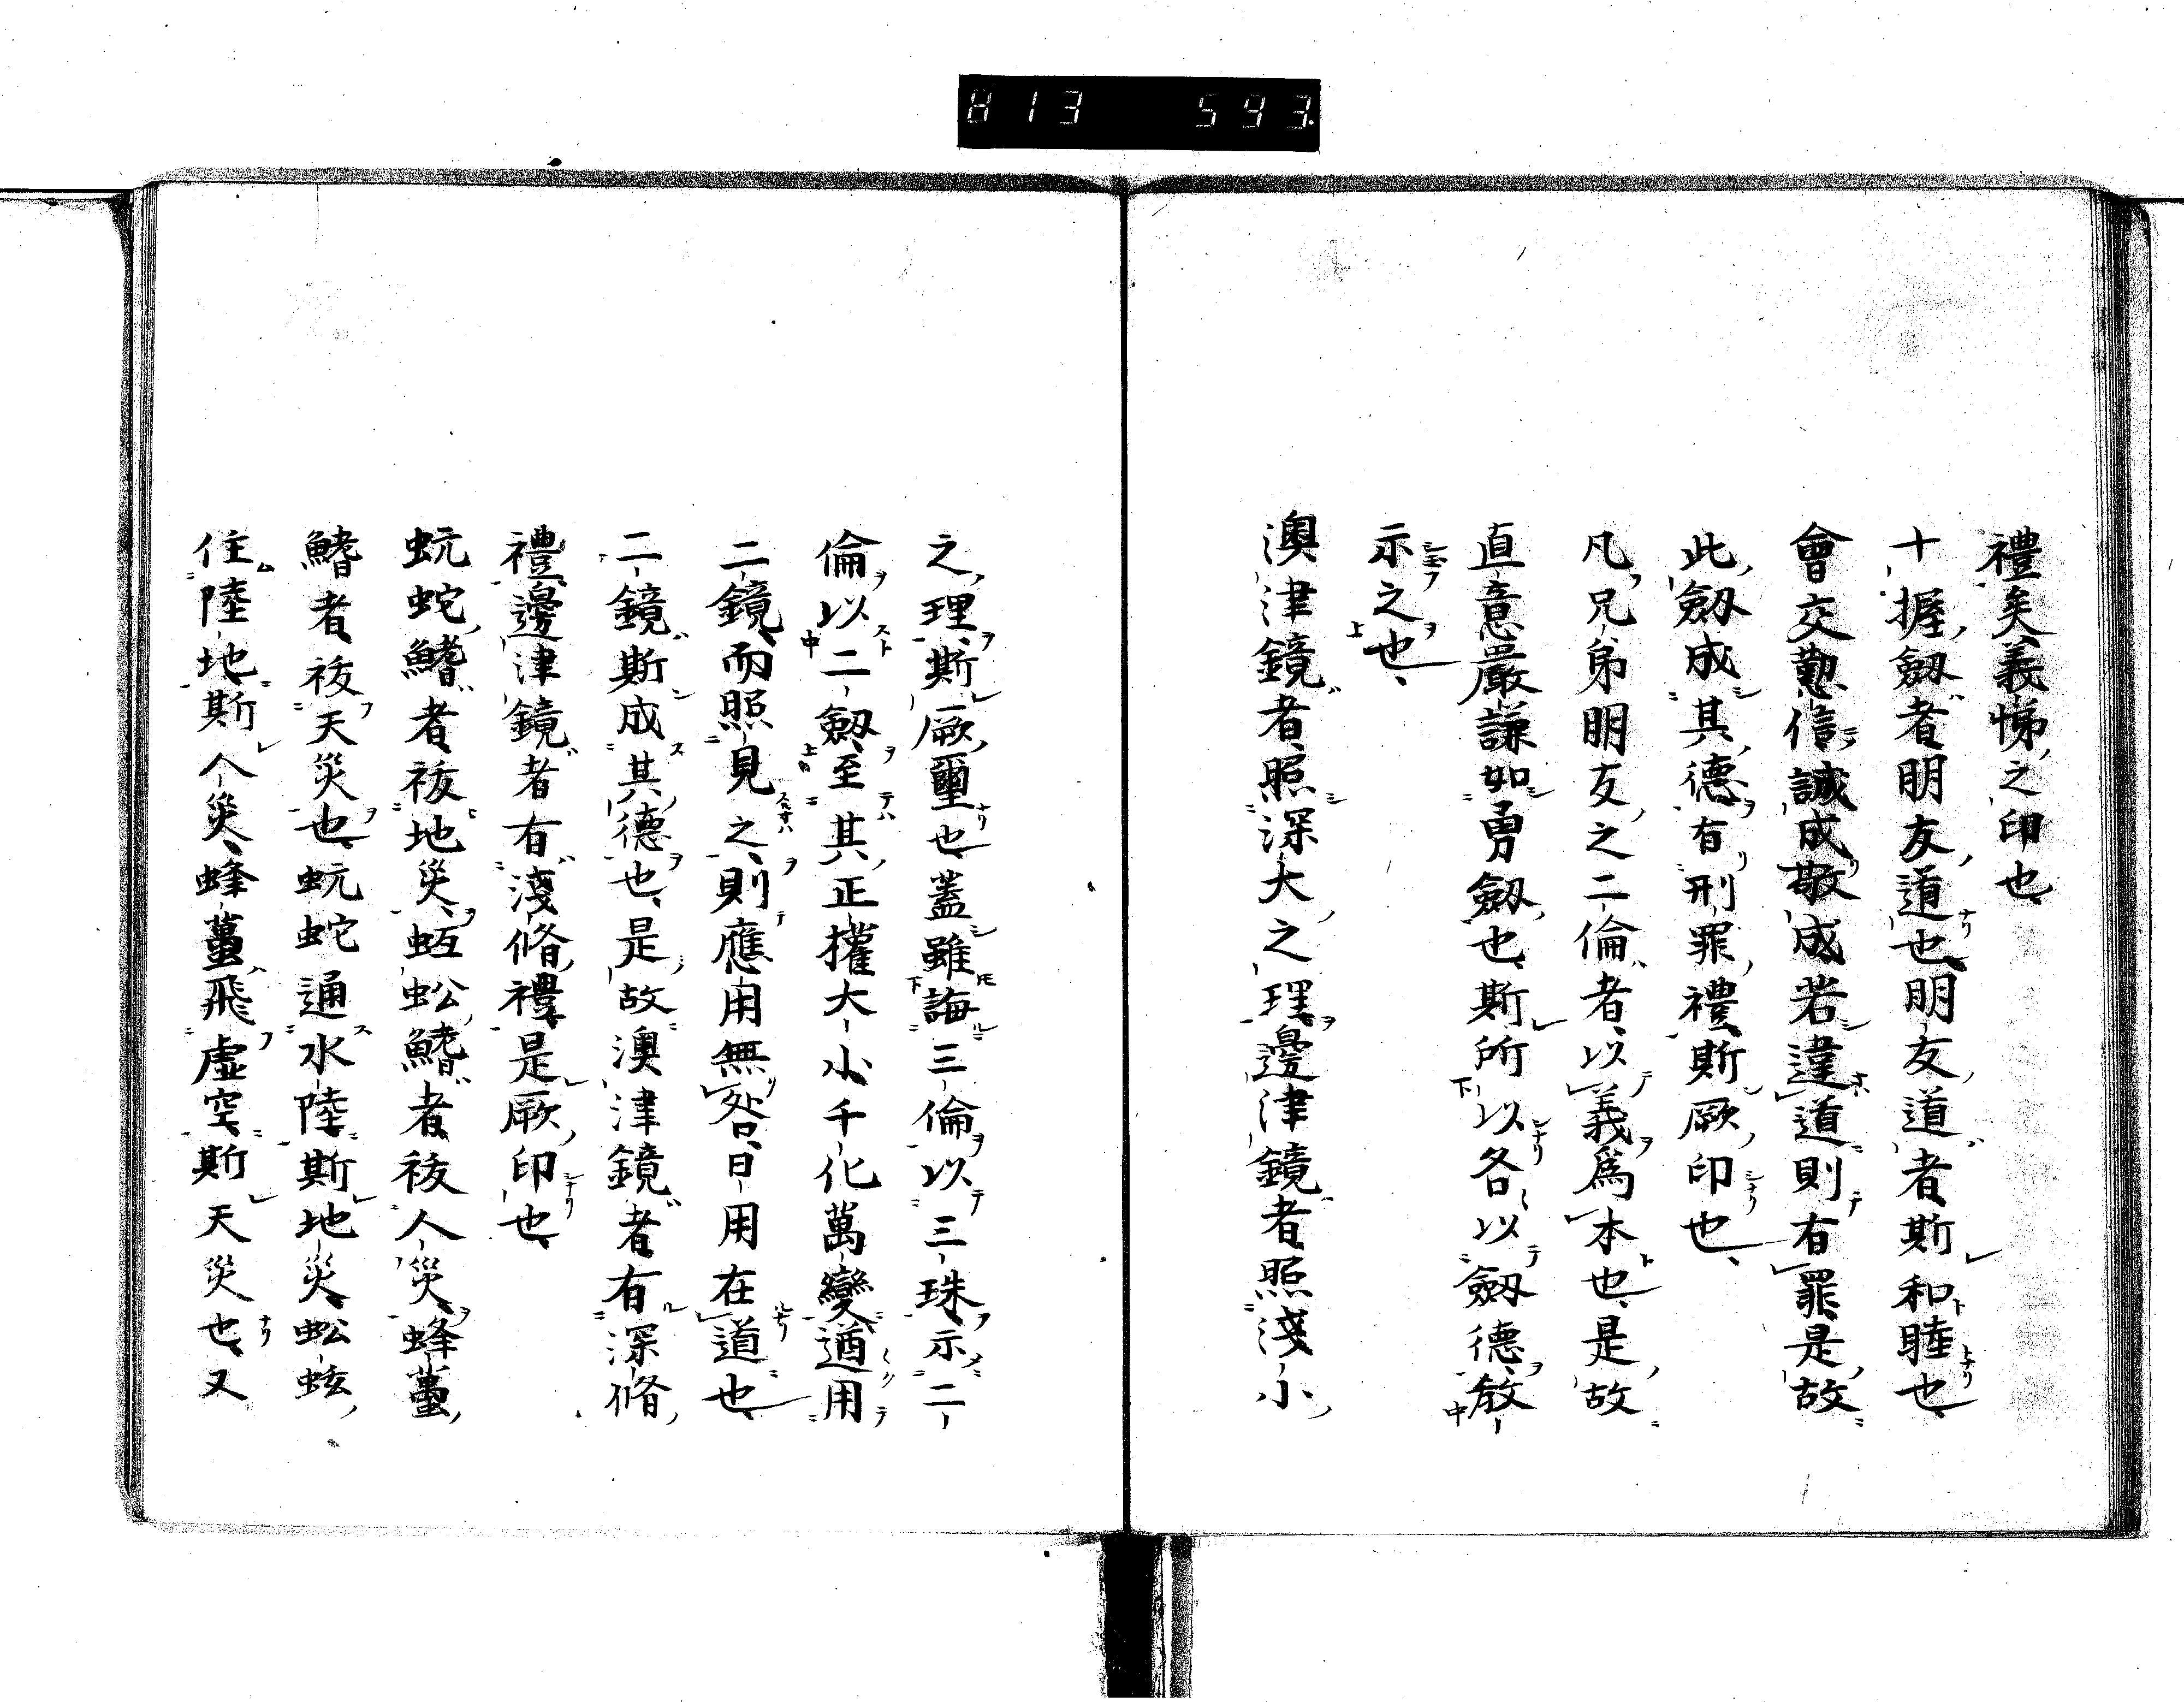 813 593
禮矣義悌之印也
十握劔者朋友道也朋友道者斯和睦也
會交懃信誠成敬成若違道則有罪是故
此劔成其德有刑罪禮斯厥印也
凡兄弟朋友之二倫者以義爲本也是故
直意嚴謙如勇劔也斯所以各以劔德教
示之也
澳津鏡者照深大之理邊津鏡者照淺小
之理斯厥璽也蓋雖誨三倫以三珠示二
倫以二劔至其正權大小千化萬變遒用
二鏡而照見之則應用無咎日用在道也
二鏡斯成其德也是故澳津鏡者有深脩
禮邊津鏡者有淺脩禮是厥印也
蚖蛇鰭者祓地災蚯蚣鰭者祓人災蜂蠆
鰭者祓天災也蚖蛇通水陸斯地災蚣蚿
住陸地斯人災蜂蠆飛虛空斯天災也又